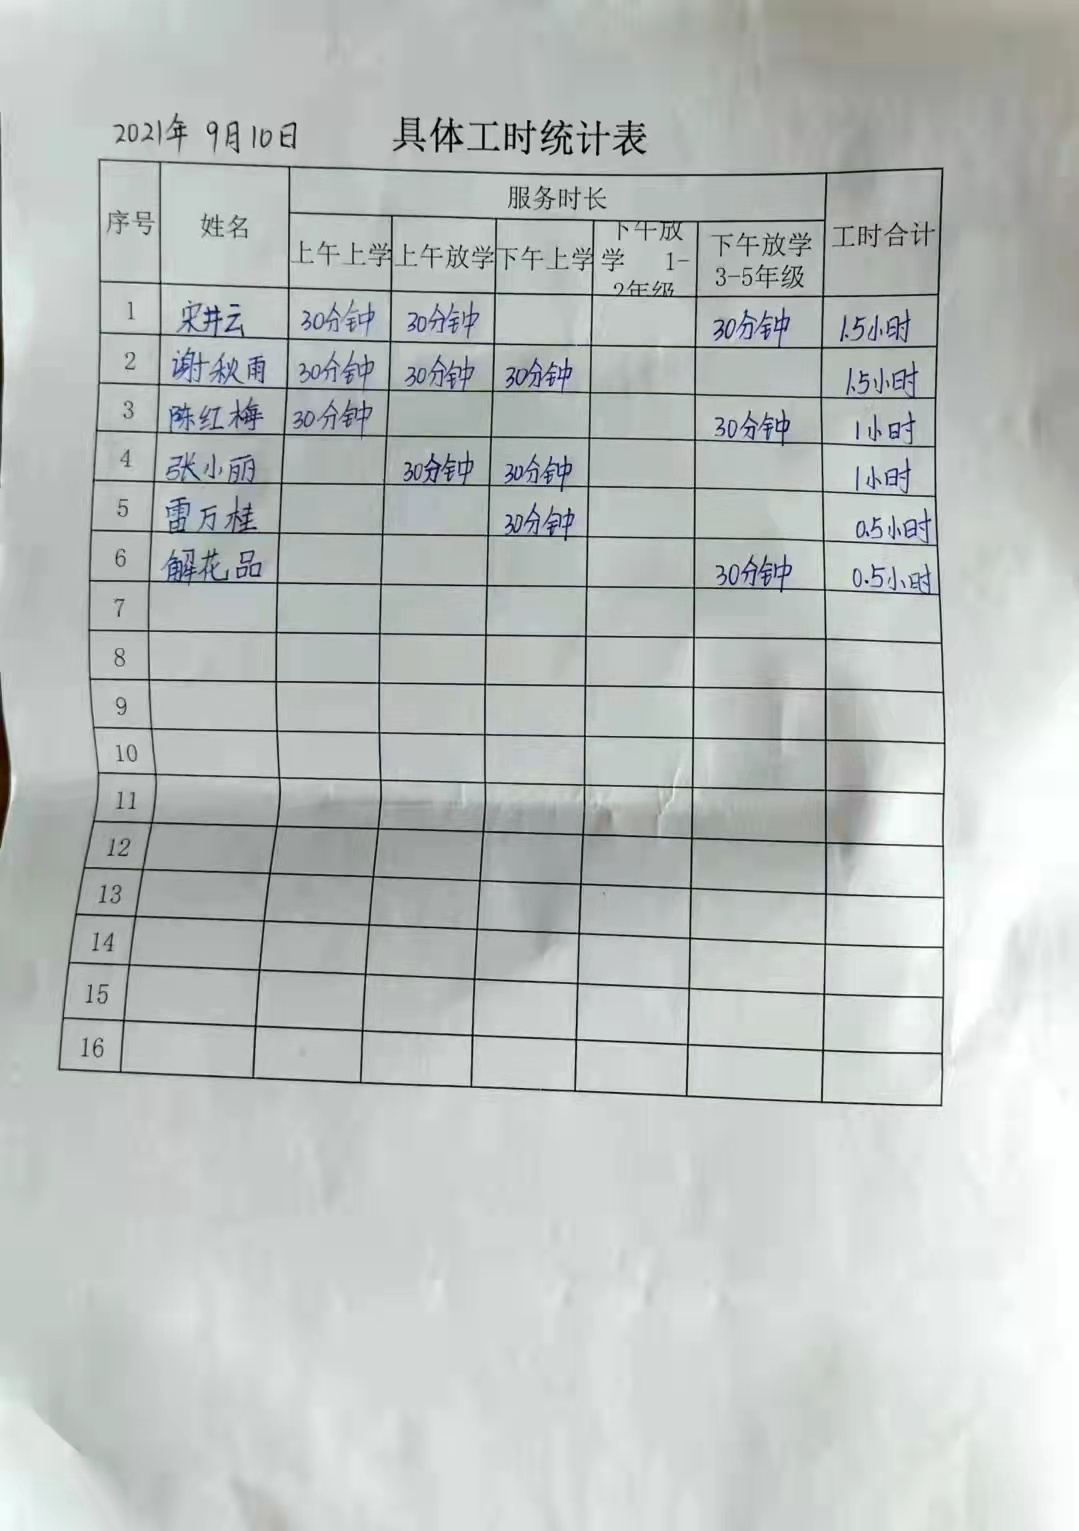 2021年 9月10日 具体工时统计表
序号 姓名 服务时长 工时合计
上午上学 上午放学 下午上学 下午放学 1-2年级 下午放学 3-5年级
1 宋井云 30分钟 30分钟 30分钟 1.5小时
2 谢秋雨 30分钟 30分钟 30分钟 1.5小时
3 陈红梅 30分钟 30分钟 1小时
4 张小丽 30分钟 30分钟 1小时
5 雷万桂 30分钟 0.5小时
6 解花品 30分钟 0.5小时
7
8
9
10
11
12
13
14
15
16